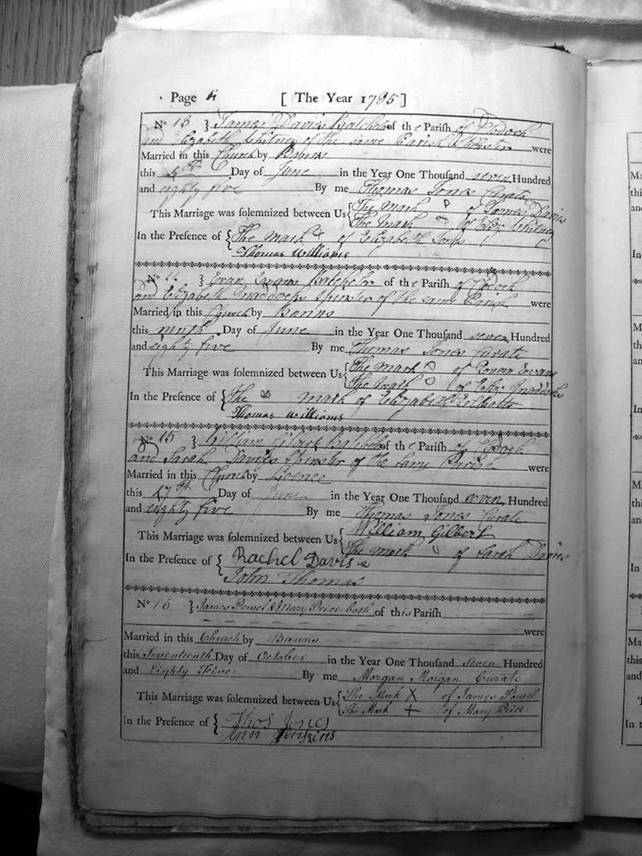 Page 4 [ The Year 1785 ]
No 13 } James Davis Batchelor of the Parish of
and Elizabeth Whitney of the same Parish Spinster were
Married in this Church by Banns
this 5th Day of June in the Year One Thousand seven Hundred
and eighty five By me Thomas Jones Curate
This Marriage was solemnized between Us { The Mark of Davis
The Mark of Eliz. Whitney
In the Presence of { The Mark of Elizabeth Jones
Thomas Williams
No } Evan Evans Batchelor of the Parish of
and Elizabeth Maddocks Spinster of the same Parish were
Married in this Church by Banns
this ninth Day of June in the Year One Thousand seven Hundred
and eighty five By me Thomas Jones Curate
This Marriage was solemnized between Us { The Mark of Evans
The Mark of Eliz. Maddocks
In the Presence of { The mark of Elizabeth
Thomas Williams
No 15 } William Batchelor of the Parish of
and Sarah Davies Spinster of the same Parish were
Married in this Church by Licence
this 17th Day of June in the Year One Thousand seven Hundred
and eighty five By me Thomas Jones Curate
This Marriage was solemnized between Us { William Gilbert
The mark of Sarah Davies
In the Presence of { Rachel Davis
John Thomas
No 16 } James Powel & Mary Price both of this Parish
were
Married in this Church by Banns
this Seventeenth Day of October in the Year One Thousand Seven Hundred
and Eighty Five By me Morgan Morgan Curate
This Marriage was solemnized between Us { The Mark X of James Powel
The Mark + of Mary Price
In the Presence of { Thos Jones
Ann Jenkins